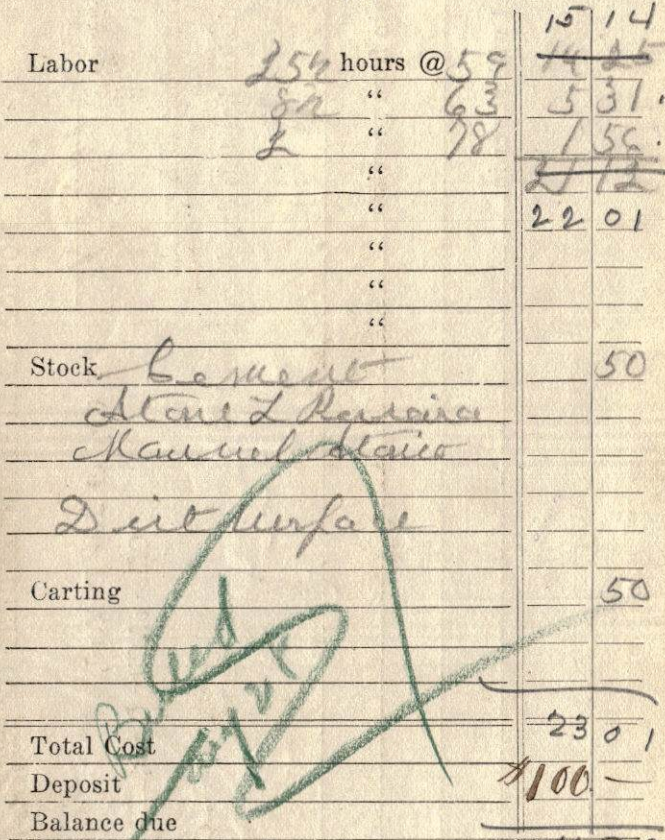 15 14
Labor hours @ 59 14 25
" 63 5 31
2 " 78 1 56
" 21 12
" 22 01
"
"
"
Stock Cement 50
Stone
Manuel
Dirt surface
Carting 50
Billed
Total Cost 23 01
Deposit $100 —
Balance due